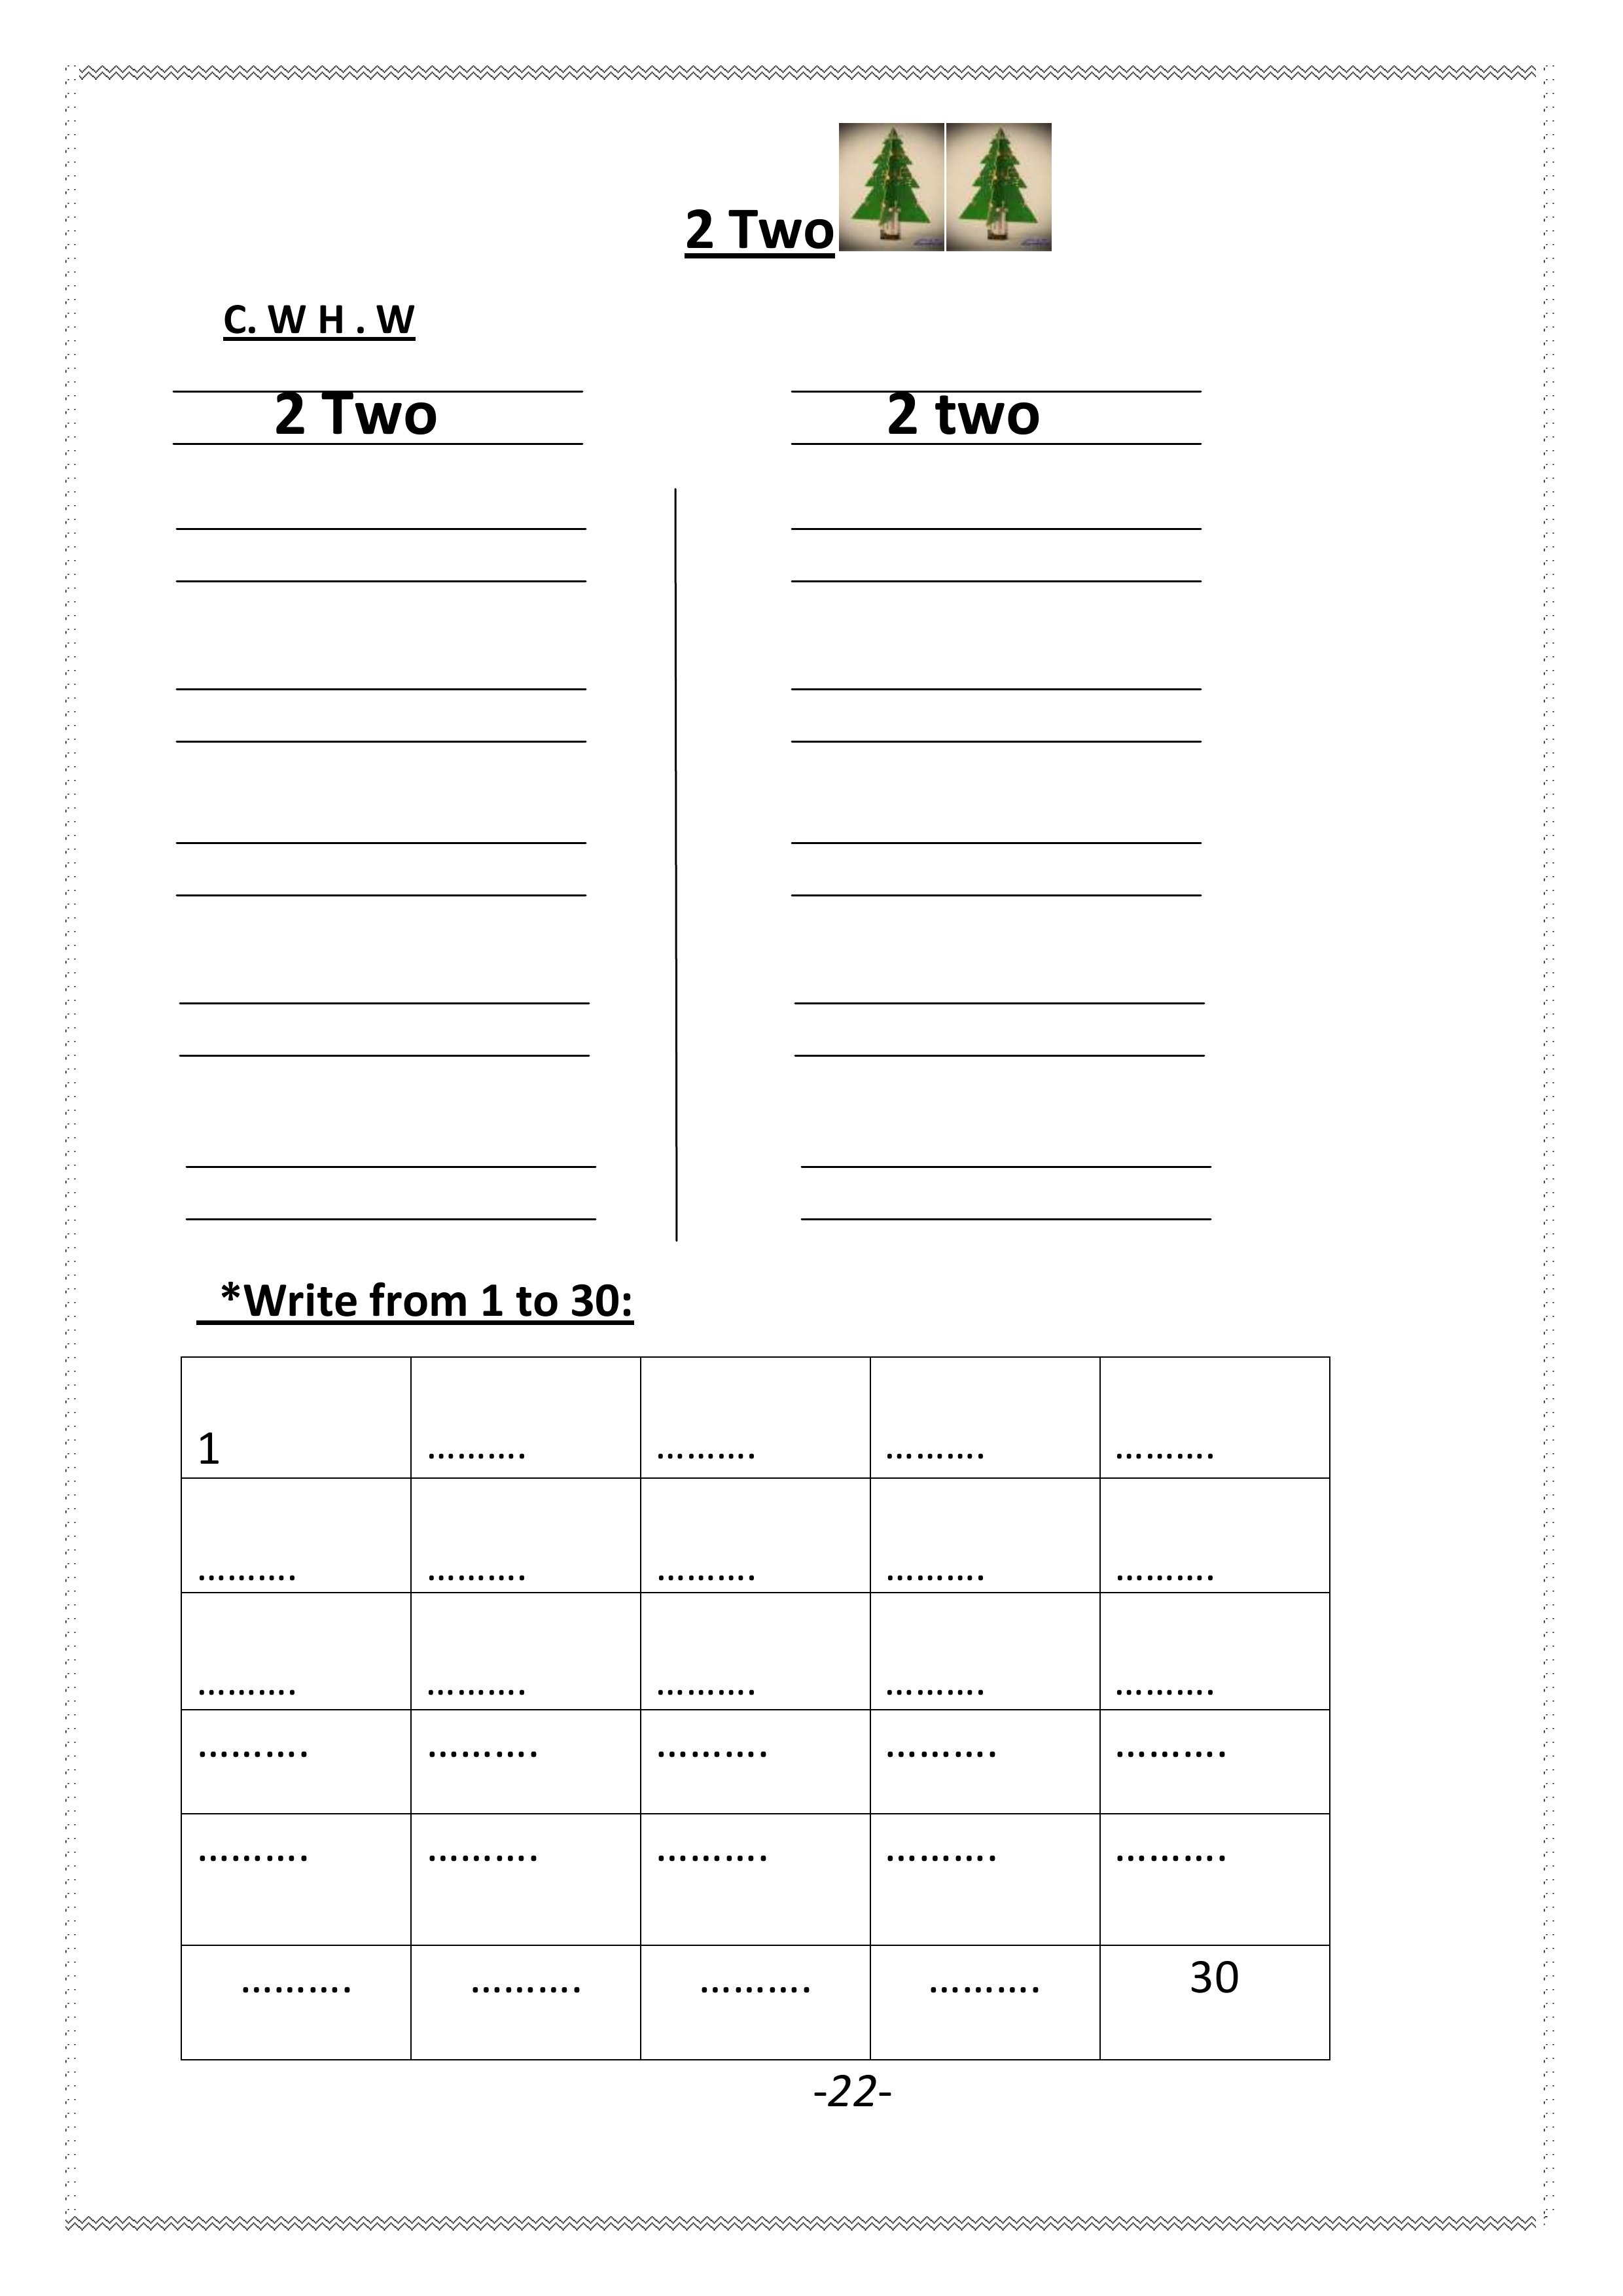 2 Two
C. W H . W
2 Two 2 two
*Write from 1 to 30:
1 .......... .......... .......... ..........
.......... .......... .......... .......... ..........
.......... .......... .......... .......... ..........
.......... .......... .......... .......... ..........
.......... .......... .......... .......... ..........
.......... .......... .......... .......... 30
-22-